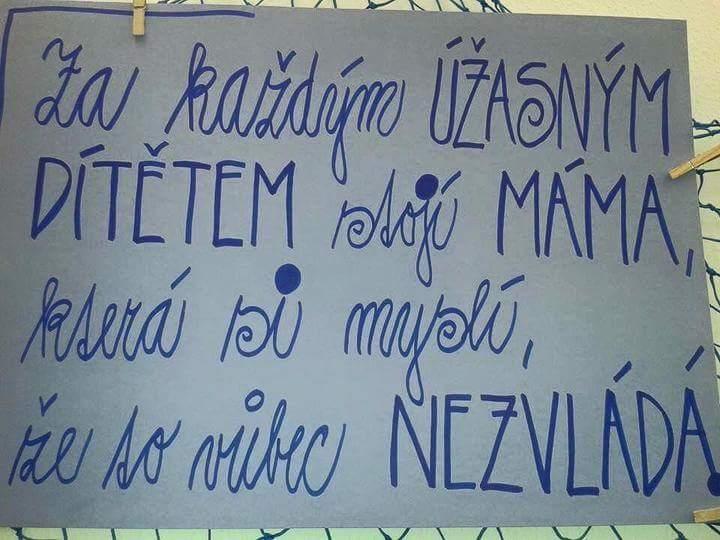 Za každým ÚŽASNÝM
DÍTĚTEM stojí MÁMA,
která si myslí,
že to vůbec NEZVLÁDÁ.